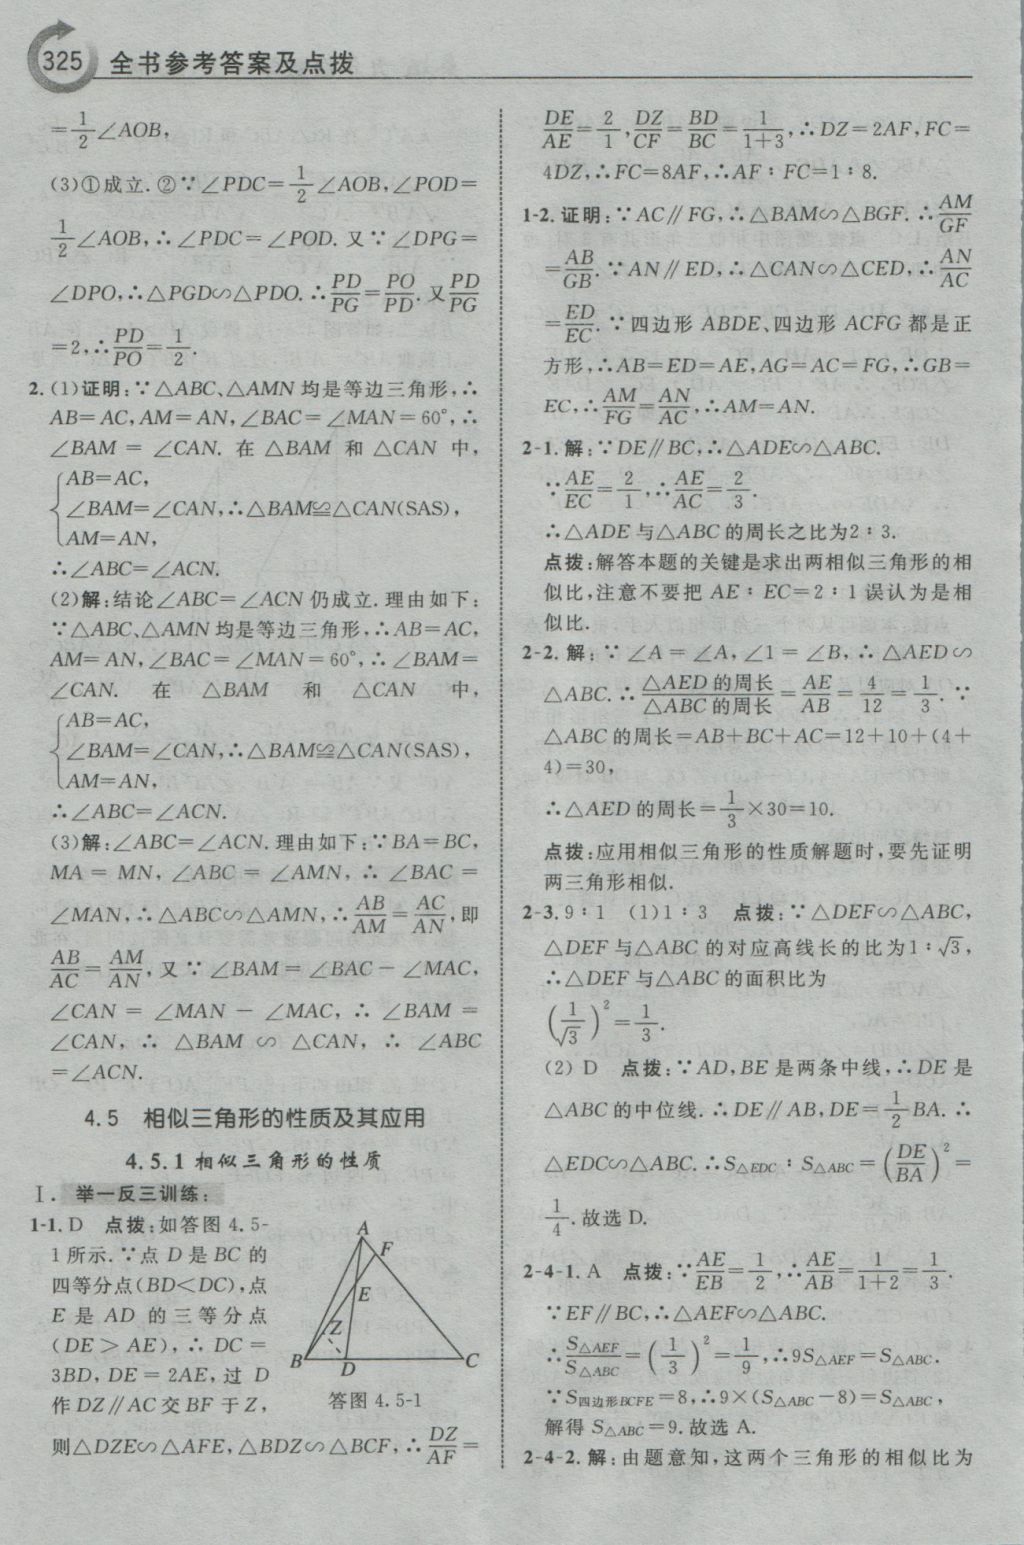 325 全书参考答案及点拨
=1/2∠AOB,
(3)①成立.②∵∠PDC=1/2∠AOB,∠POD=
1/2∠AOB,∴∠PDC=∠POD.又∵∠DPG=
∠DPO,∴△PGD∽△PDO.∴PD/PG=PO/PD.又PD/PG
=2,∴PD/PO=1/2.
2.(1)证明:∵△ABC、△AMN均是等边三角形,∴
AB=AC,AM=AN,∠BAC=∠MAN=60°,∴
∠BAM=∠CAN.在△BAM和△CAN中,
{AB=AC,
∠BAM=∠CAN,∴△BAM≌△CAN(SAS),
AM=AN,
∴∠ABC=∠ACN.
(2)解:结论∠ABC=∠ACN仍成立.理由如下:
∵△ABC、△AMN均是等边三角形,∴AB=AC,
AM=AN,∠BAC=∠MAN=60°,∴∠BAM=
∠CAN.在△BAM和△CAN中,
{AB=AC,
∠BAM=∠CAN,∴△BAM≌△CAN(SAS),
AM=AN,
∴∠ABC=∠ACN.
(3)解:∠ABC=∠ACN.理由如下:∵BA=BC,
MA=MN,∠ABC=∠AMN,∴∠BAC=
∠MAN,∴△ABC∽△AMN,∴AB/AM=AC/AN,即
AB/AC=AM/AN,又∵∠BAM=∠BAC-∠MAC,
∠CAN=∠MAN-∠MAC,∴∠BAM=
∠CAN,∴△BAM∽△CAN,∴∠ABC
=∠ACN.
4.5 相似三角形的性质及其应用
4.5.1 相似三角形的性质
Ⅰ.举一反三训练:
1-1.D 点拨:如答图4.5-
1所示.∵点D是BC的
四等分点(BD<DC),点
E是AD的三等分点
(DE>AE),∴DC=
3BD,DE=2AE,过D
作DZ∥AC交BF于Z,
则△DZE∽△AFE,△BDZ∽△BCF,∴DZ/AF=
A
F
E
Z
B
D
C
答图4.5-1
DE/AE=2/1,DZ/CF=BD/BC=1/1+3,∴DZ=2AF,FC=
4DZ,∴FC=8AF,∴AF∶FC=1∶8.
1-2.证明:∵AC∥FG,∴△BAM∽△BGF.∴AM/GF
=AB/GB.∵AN∥ED,∴△CAN∽△CED,∴AN/AC
=ED/EC.∵四边形ABDE、四边形ACFG都是正
方形,∴AB=ED=AE,AG=AC=FG,∴GB=
EC,∴AM/FG=AN/AC,∴AM=AN.
2-1.解:∵DE∥BC,∴△ADE∽△ABC.
∵AE/EC=2/1,∴AE/AC=2/3.
∴△ADE与△ABC的周长之比为2∶3.
点拨:解答本题的关键是求出两相似三角形的相
似比,注意不要把AE∶EC=2∶1误认为是相
似比.
2-2.解:∵∠A=∠A,∠1=∠B,∴△AED∽
△ABC.∴△AED的周长/△ABC的周长=AE/AB=4/12=1/3.∵
△ABC的周长=AB+BC+AC=12+10+(4+
4)=30,
∴△AED的周长=1/3×30=10.
点拨:应用相似三角形的性质解题时,要先证明
两三角形相似.
2-3.9∶1 (1)1∶3 点拨:∵△DEF∽△ABC,
△DEF与△ABC的对应高线长的比为1∶√3,
∴△DEF与△ABC的面积比为
(1/√3)²=1/3.
(2) D 点拨:∵AD,BE是两条中线,∴DE是
△ABC的中位线.∴DE∥AB,DE=1/2BA.∴
△EDC∽△ABC.∴S△EDC∶S△ABC=(DE/BA)²=
1/4.故选D.
2-4-1.A 点拨:∵AE/EB=1/2,∴AE/AB=1/1+2=1/3.
∵EF∥BC,∴△AEF∽△ABC.
∴S△AEF/S△ABC=(1/3)²=1/9,∴9S△AEF=S△ABC.
∵S四边形BCFE=8,∴9×(S△ABC-8)=S△ABC,
解得S△ABC=9.故选A.
2-4-2.解:由题意知,这两个三角形的相似比为